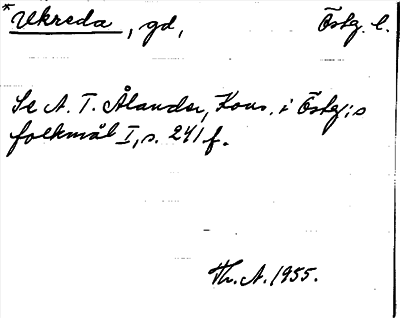 *Ukreda, gd, Östg. l.
Se A. T. Ålander, Kons. i Östg:s
folkmål I, s. 241 f.
Th. A. 1955.